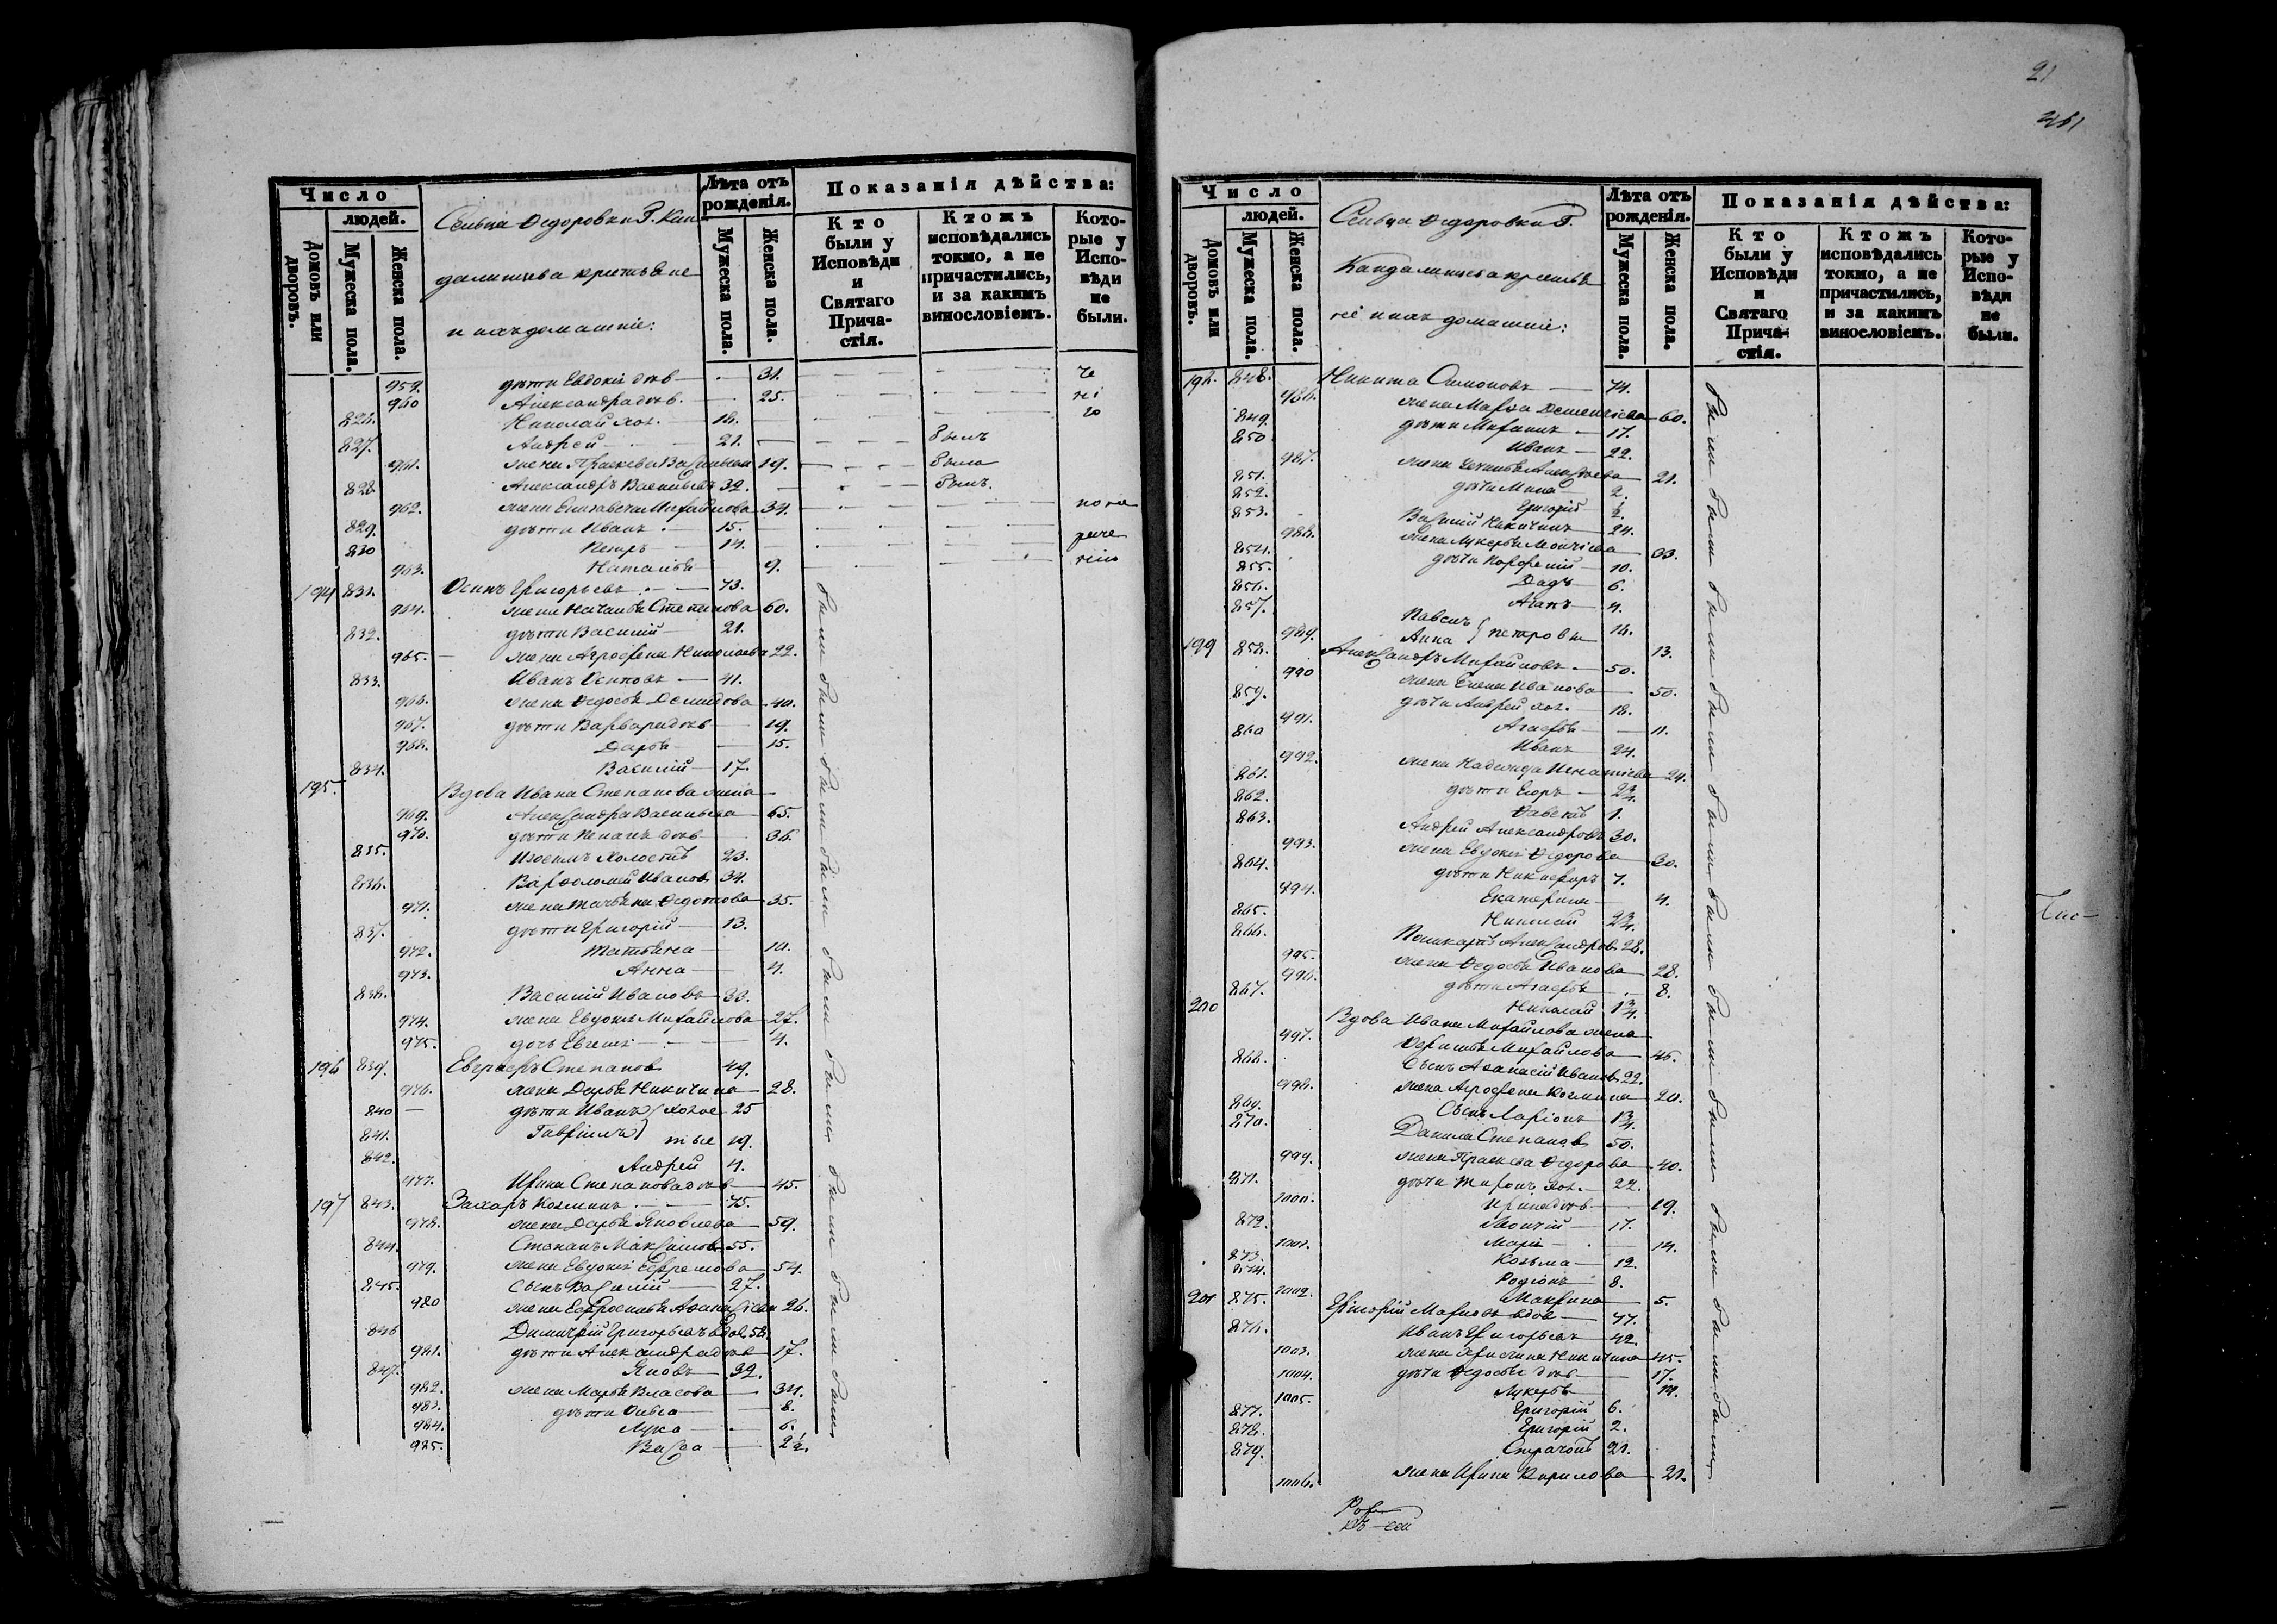 Число
людей.
Домовъ или дворовъ.
Мужеска пола.
Женска пола.
Сельца Ѳедоровки Г. Кан-
далинцева крестьяне
и ихъ домашніе:
Лѣта отъ рожденія.
Мужеска пола.
Женска пола.
Показанія дѣйства:
Кто были у Исповѣди и Святаго Причастія.
Ктожъ исповѣдались токмо, а не причастились, и за какимъ винословіемъ.
Которые у Исповѣди не были.
959. дѣти Евдокія дѣв 31.
960 Александра дѣв. 25.
826. Николай хол. 18.
827. Андрей 21. былъ
961. жена Прасковья Васильева 19. была
828 Александръ Васильевъ 32. былъ.
962. жена Елизавета Михайлова 34.
829. дѣти Иванъ 15.
830 Петръ 14.
963. Наталья 9.
194 831. Осипъ Григорьевъ 73.
964. жена Наталья Степанова 60.
832. дѣти Василій 21.
965. жена Агрофена Николаева 22.
833. Иванъ Осиповъ 41.
966. жена Ѳедосья Демидова 40.
967. дѣти Варвара дѣв 19.
968. Дарья 15.
834. Василій 17.
195. Вдова Ивана Степанова жена
969. Александра Васильева 65.
970. дѣти дѣв 36.
835. Изосимъ холостъ 23.
836. Варѳоломей Ивановъ 34.
971. жена Татьяна Ѳедотова 35.
837. дѣти Григорій 13.
972. Татьяна 10.
973. Анна 4.
838. Василій Ивановъ 33.
974. жена Евдокія Михайлова 27.
975. дочь Евгенія 4.
196 839. Евграфъ Степановъ 49.
976. жена Дарья Никитина 28.
840 дѣти Иванъ } холос 25
841. Гаврилъ } тые 19.
842. Андрей 4.
977. Ирина Степанова дѣв 45.
197 843. Захаръ Козминъ 75.
978. жена Дарья Яковлева 59.
844. Степанъ Максимовъ 55.
979. жена Евдокія Ефремова 54.
845. Сынъ Василій 27.
980 жена Ефросинья Аѳанасьева 26.
846 Димитрій Григорьевъ вдов. 58.
981. дѣти Александра дѣв 17.
847. Яковъ 32.
982. жена Марья Власова 34.
983. дѣти Ольга 8.
984. Лука 6.
985. Васса 2½.
21
Число
людей.
Домовъ или дворовъ.
Мужеска пола.
Женска пола.
Сельца Ѳедоровки Г.
Кандалинцева крестья
не и ихъ домашніе:
Лѣта отъ рожденія.
Мужеска пола.
Женска пола.
Показанія дѣйства:
Кто были у Исповѣди и Святаго Причастія.
Ктожъ исповѣдались токмо, а не причастились, и за какимъ винословіемъ.
Которые у Исповѣди не были.
198. 848. Никита Симоновъ 74.
986. жена Марѳа Дементіева 60.
849. дѣти Михаилъ 17.
850 Иванъ 22.
987. жена Алексѣева 21.
851. дѣти Мина 2.
852. Григорій ½.
853. Василій Никитинъ 24.
988. жена Лукерья 33.
854. дѣти Порфирій 10.
855. 6.
856. Агапъ 4.
857. Павелъ } Петровы 14.
989. Анна } 13.
199 858. Александръ Михайловъ 50.
990 жена Елена Иванова 50.
859. дѣти Андрей хол. 18.
991. Агафья 11.
860 Иванъ 24.
992. жена Надежда Игнатіева 24.
861. дѣти Егоръ 2¾.
862. 1.
863. Андрей Александровъ 30.
993. жена Евдокія Ѳедорова 30.
864. дѣти Никифоръ 7.
994. Екатерина 4.
865. Николай 2¾.
866. Поликарпъ Александровъ 28.
995. жена Ѳедосья Иванова 28.
996. дѣти Агафья 8.
867. Николай 1¾.
200 Вдова Ивана Михайлова жена
997. Михайлова 46.
868. Сынъ Аѳанасій Ивановъ 22.
998. жена Агрофена Козмина 20.
869. Сынъ Ларіонъ 1¾.
870. Данила Степановъ 50.
999. жена Прасковья Ѳедорова 40.
871. дѣти Миронъ хол. 22.
1000. Ирина дѣв 19.
872. Леонтій 17.
1001. Марія 14.
873. Козьма 12.
874. Родіонъ 8.
1002. Макрина 5.
201 875. Григорій Марковъ вдов 77.
876. Иванъ Григорьевъ 42.
1003. жена Христина Никитина 45.
1004. дѣти Ѳедосья дѣв 17.
1005. Лукерья 14.
877. Григорій 6.
878. Григорій 2.
879. Стратонъ 21.
1006. жена Ирина Кирилова 21.